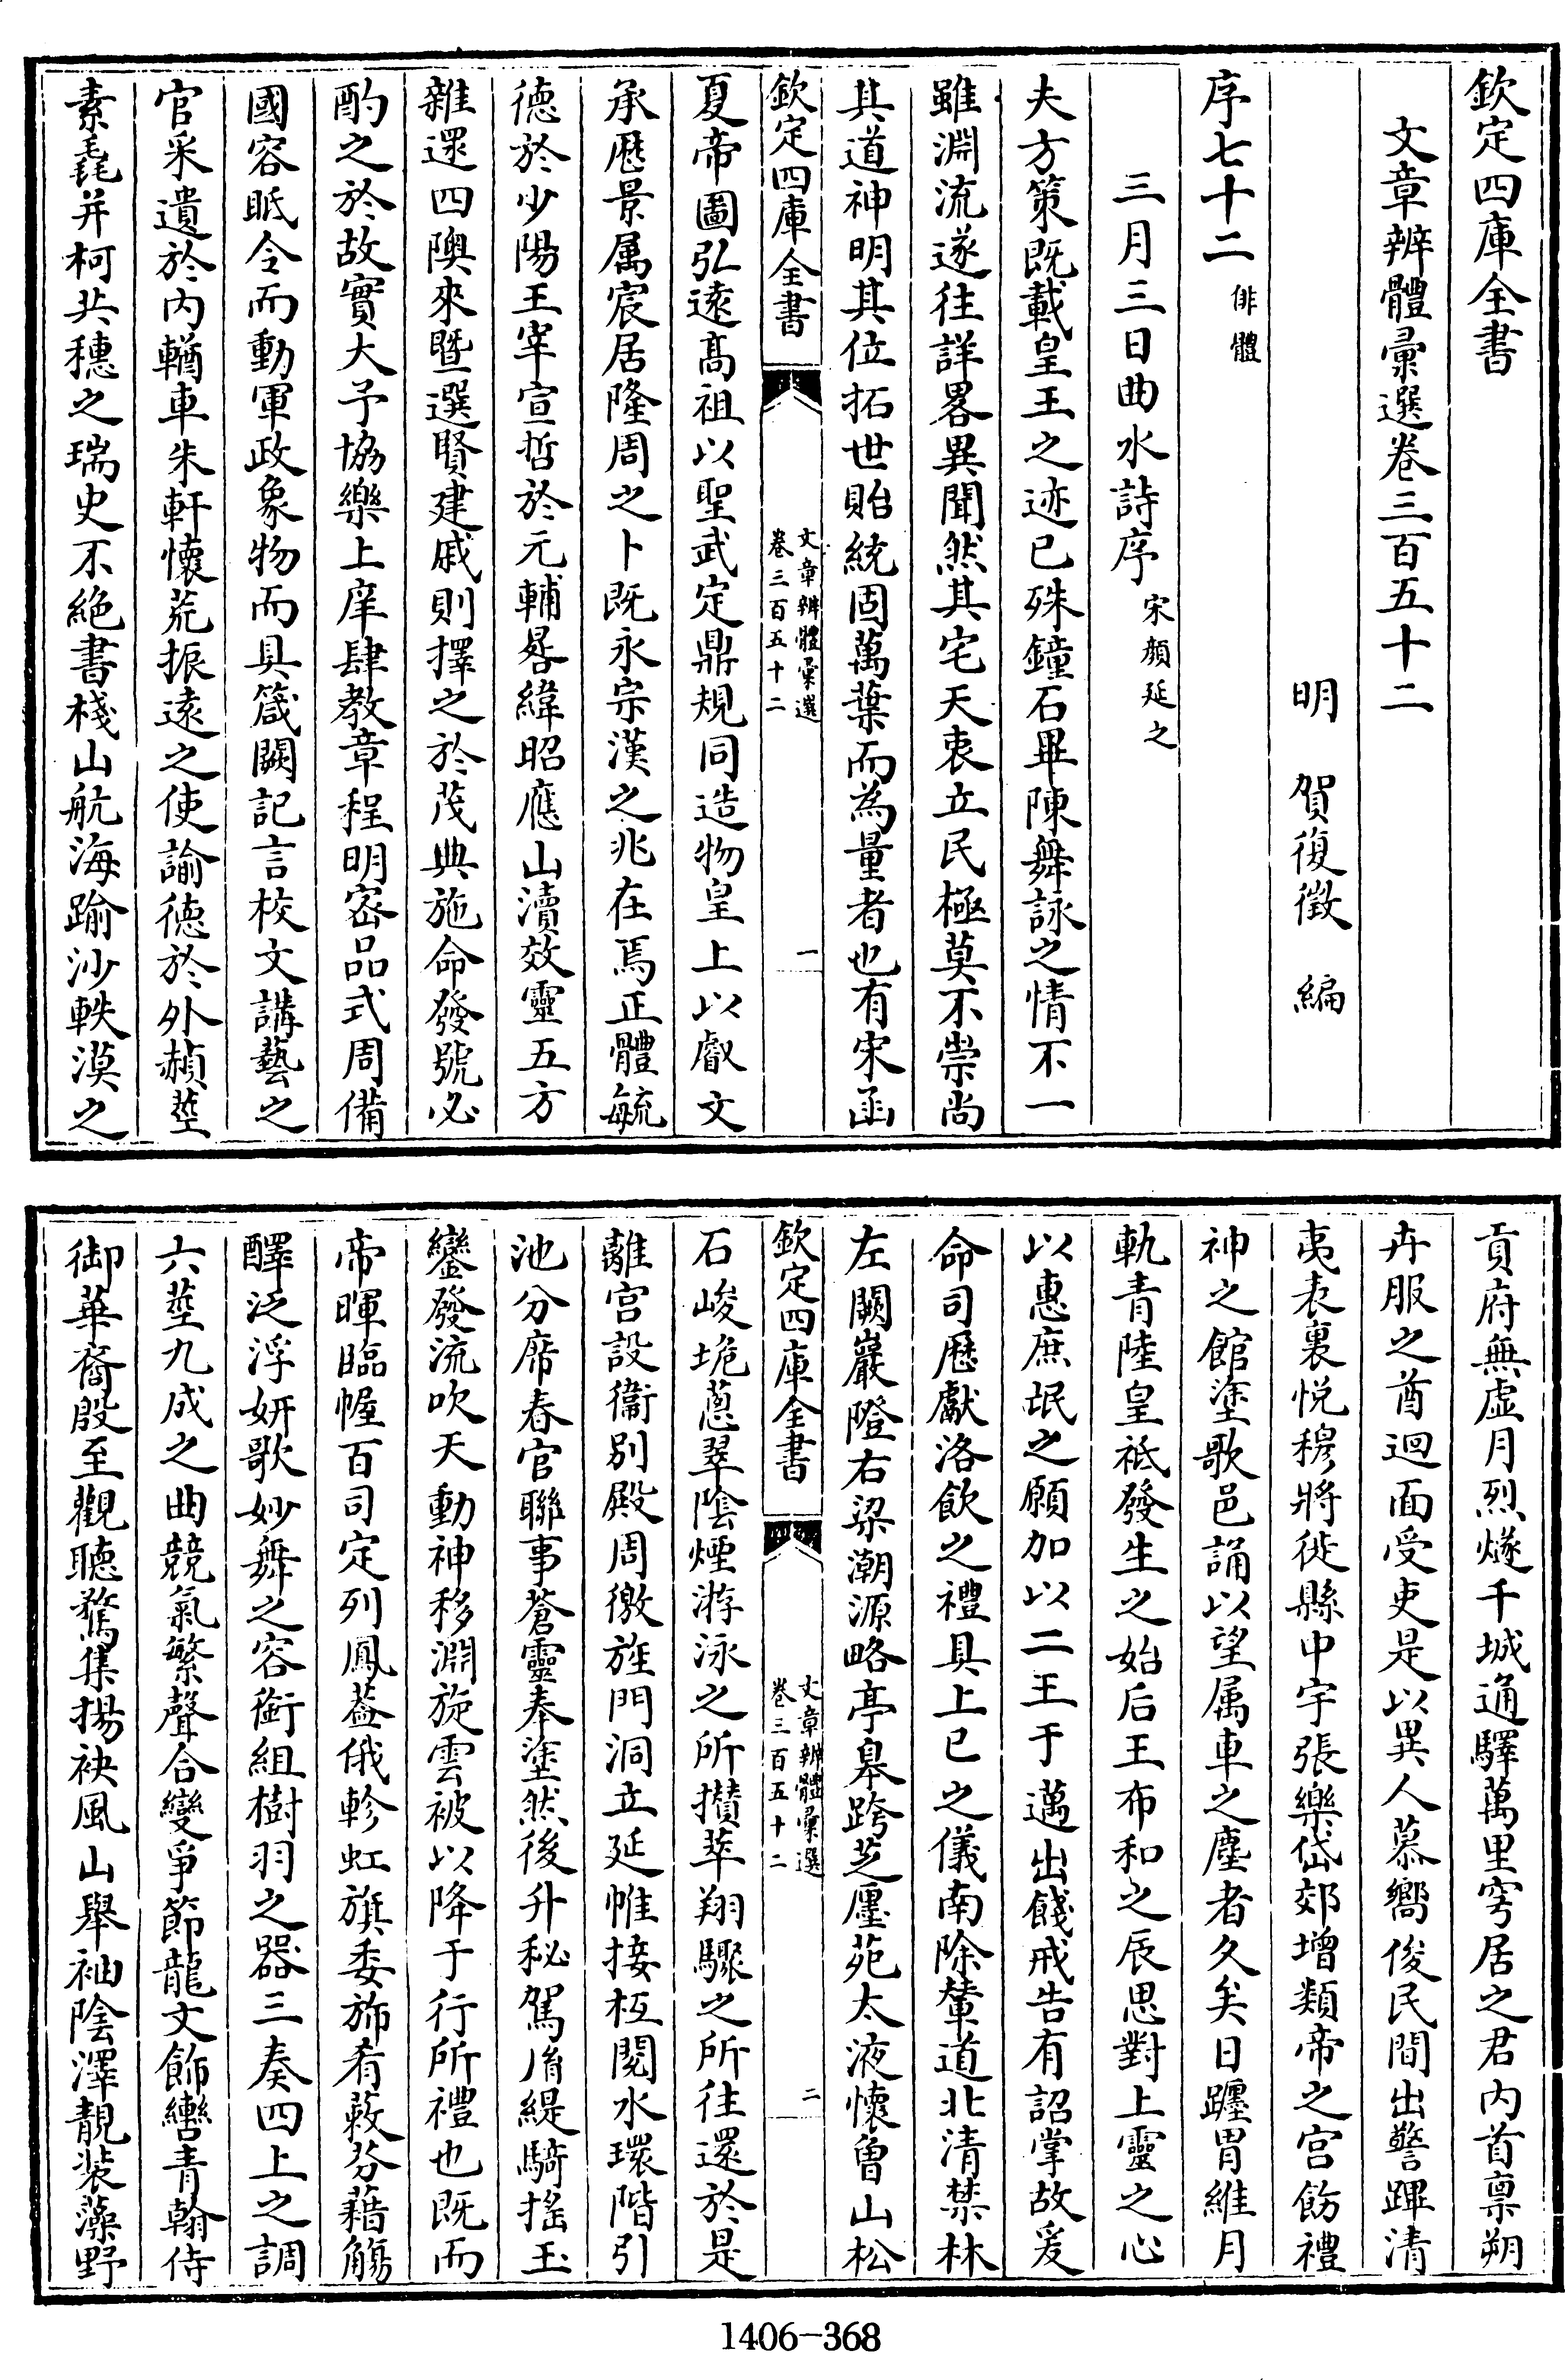 欽定四庫全書
文章辨體彙選卷三百五十二
明　賀復徵　編
序七十二俳體
三月三日曲水詩序宋顔延之
夫方策既載皇王之迹已殊鐘石畢陳舞詠之情不一
雖淵流遂往詳畧異聞然其宅天衷立民極莫不崇尚
其道神明其位拓世貽統固萬葉而為量者也有宋函
欽定四庫全書
文章辨體彙選
卷三百五十二
一
夏帝圖弘遠髙祖以聖武定鼎規同造物皇上以叡文
承歴景属宸居隆周之卜既永宗漢之兆在焉正體毓
德於少陽王宰宣哲於元輔晷緯昭應山瀆效靈五方
雜遝四隩來暨選賢建戚則擇之於茂典施命發號必
酌之於故實大予協樂上庠肆教章程明密品式周備
國容眂令而動軍政象物而具箴闕記言校文講藝之
官采遺於内輶車朱軒懷荒振遠之使諭德於外赬莖
素毳并柯共穗之瑞史不絶書棧山航海踰沙軼漠之
貢府無虚月烈燧千城通驛萬里穹居之君内首禀朔
卉服之酋迴面受吏是以異人慕嚮俊民間出警蹕清
夷表裏悦穆將徙縣中宇張樂岱郊增類帝之宫飭禮
神之館塗歌邑誦以望属車之塵者久矣日躔胃維月
軌青陸皇祗發生之始后王布和之辰思對上靈之心
以惠庶氓之願加以二王于邁出餞戒告有詔掌故爰
命司歴獻洛飲之禮具上巳之儀南除輦道北清禁林
左闕巖隥右梁潮源略亭皋跨芝廛苑太液懷曾山松
欽定四庫全書
文章辨體彙選
卷三百五十二
二
石峻垝蔥翠陰煙游泳之所攅萃翔驟之所往還於是
離宫設衞别殿周徼旌門洞立延帷接枑閱水環階引
池分席春官聯事蒼靈奉塗然後升秘駕𦙍緹騎搖玉
鑾發流吹天動神移淵旋雲被以降于行所禮也既而
帝暉臨幄百司定列鳳葢俄軫虹旗委旆肴蔌芬藉觴
醳泛浮妍歌妙舞之容銜組樹羽之器三奏四上之調
六莖九成之曲競氣繁聲合變爭節龍文飾轡青翰侍
御華裔殷至觀聽騖集揚袂風山舉袖陰澤靚裝藻野
1406-368